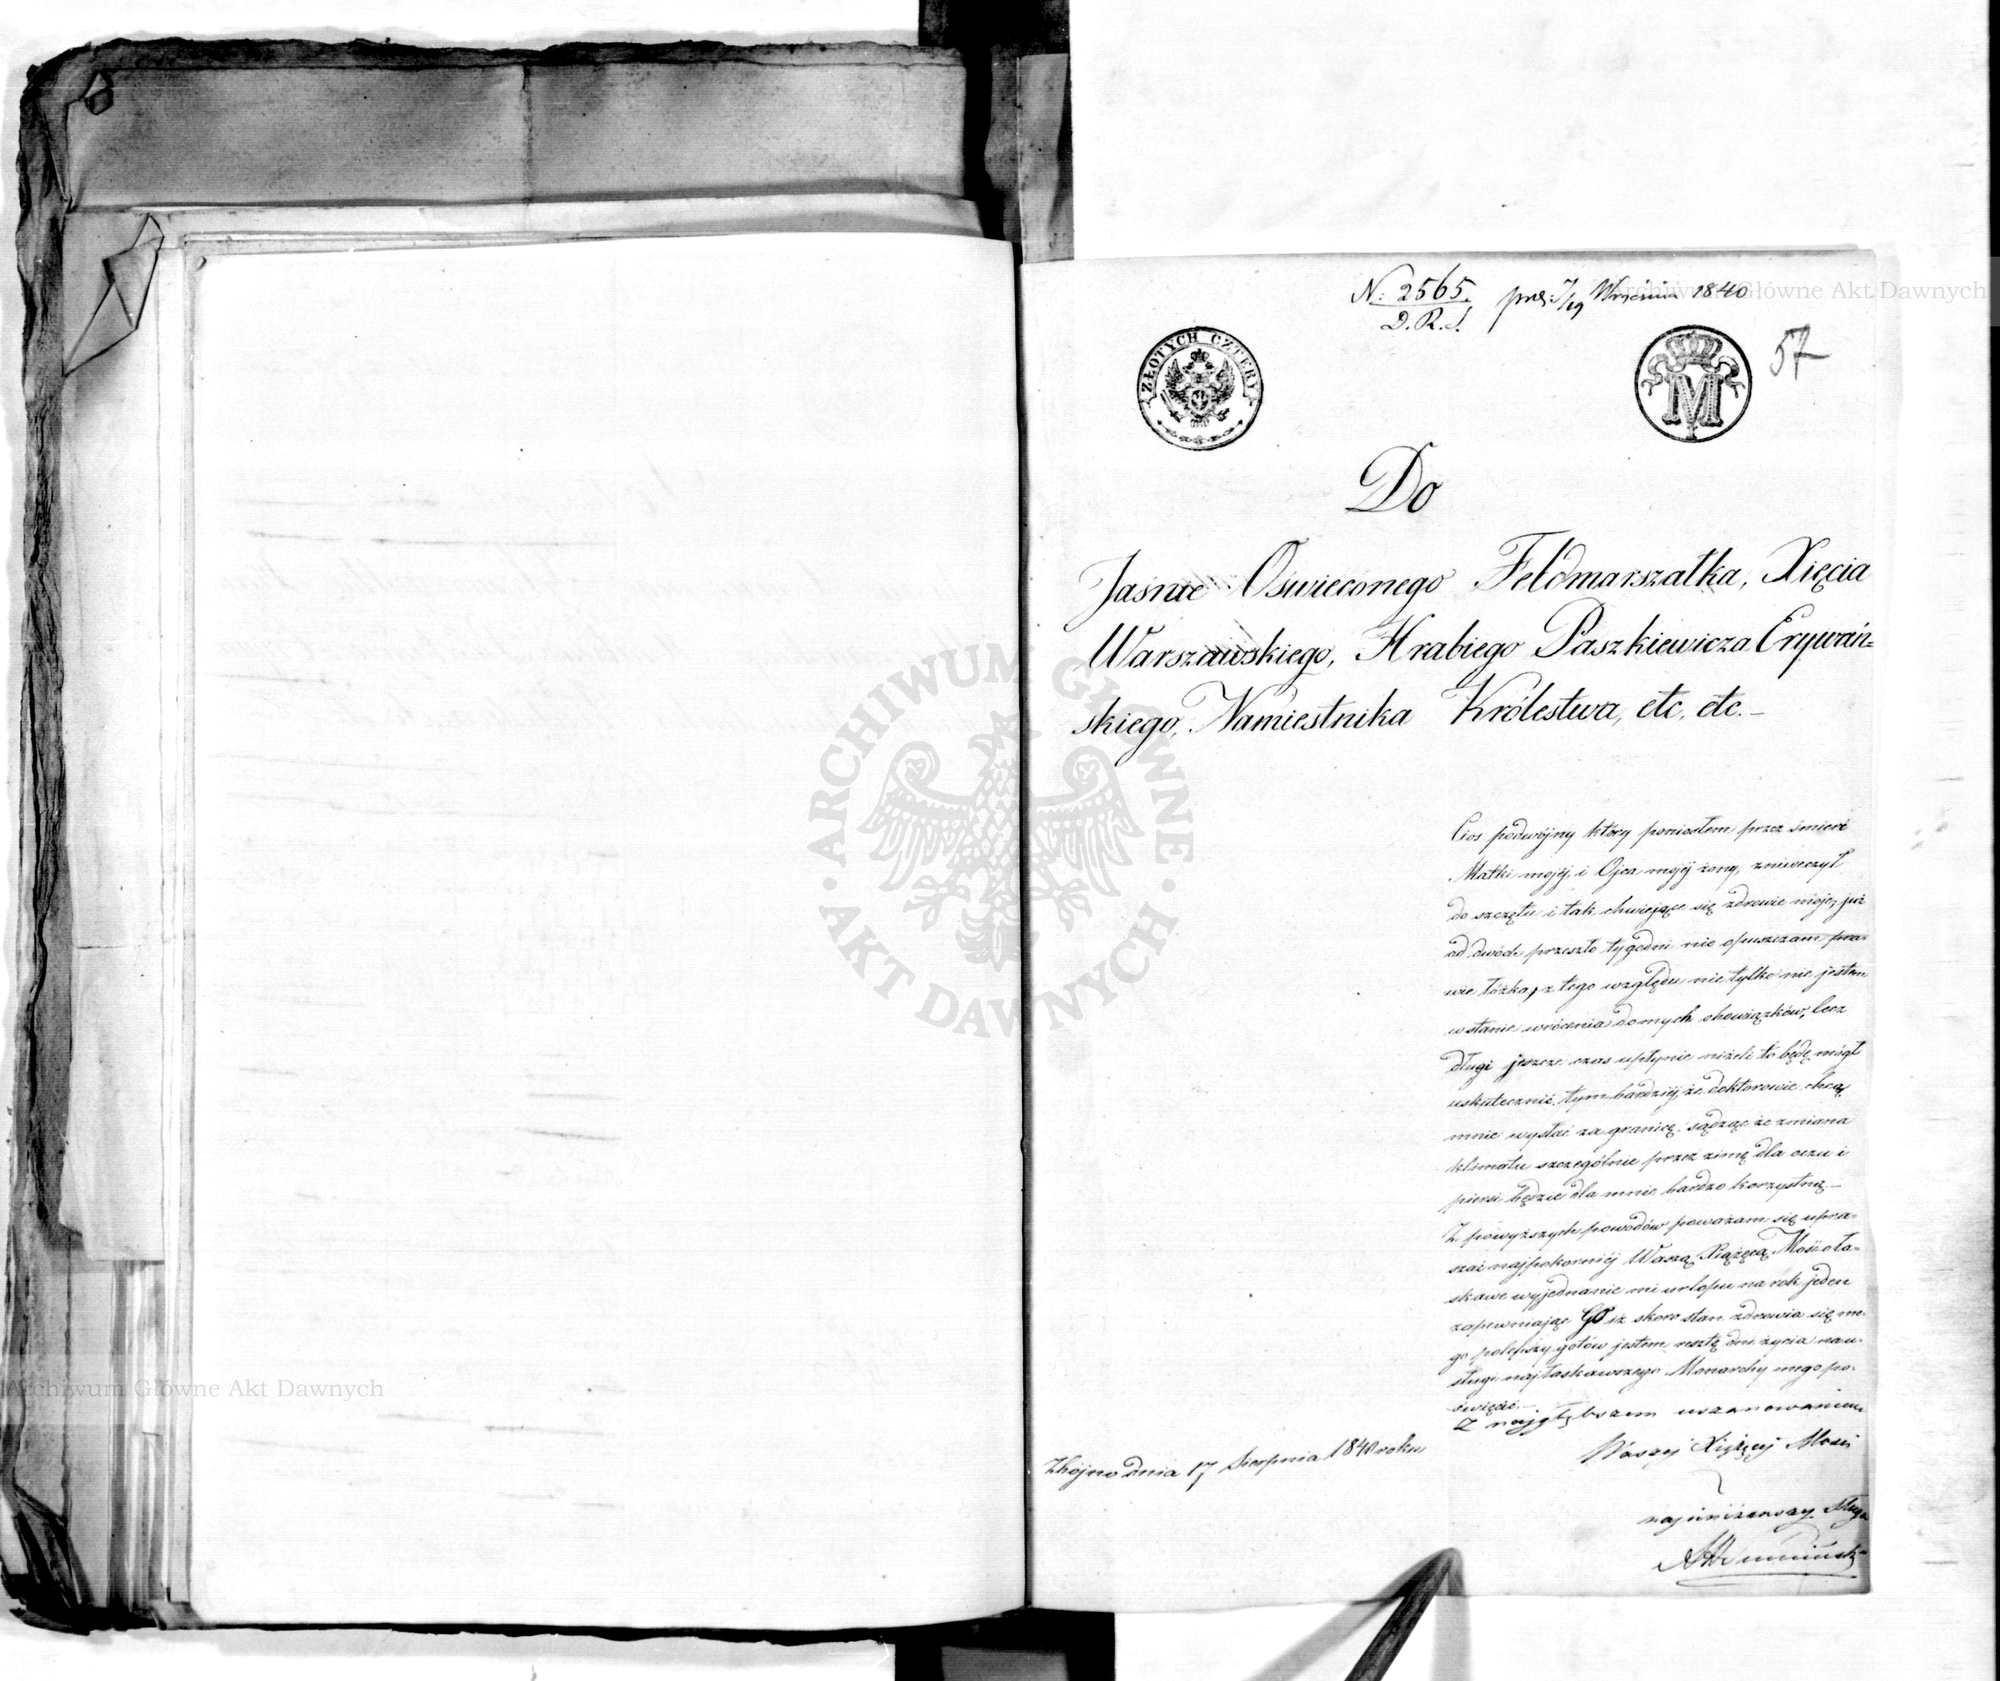 N: 2565. prez: 7/19 Września 1840
D.R.S.
57
ZŁOTYCH CZTERY
M
Do
Jaśnie Oświeconego Feldmarszałka, Xięcia
Warszawskiego, Hrabiego Paszkiewicza Erywań=
skiego, Namiestnika Królestwa, etc. etc.—
Cios podwójny który poniosłem przez śmierć
Matki mojéj, i Ojca mojéj żony, zniweczył
do szczętu i tak chwiejące się zdrowie moje, już
od dwóch przeszło tygodni nie opuszczam pra-
wie łóżka, z tego względu nie tylko nie jestem
w stanie wrócenia do mych obowiązków, lecz
długi jeszcze czas upłynie niżeli to będę mógł
uskutecznić, tym bardziéj, że doktorowie chcą
mnie wysłać za granicę, sądząc że zmiana
klimatu szczególnie przez zimę dla oczu i
piersi będzie dla mnie bardzo korzystną.—
Z powyższych powodów poważam się upra-
szać najpokorniéj Waszą Xiążęcą Mość o ła-
skawe wyjednanie mi urlopu na rok jeden
zapewniając GO iż skoro stan zdrowia się me-
go polepszy gotów jestem resztę dni życia na u-
sługi najłaskawszego Monarchy mego po-
święcić.—
Z najgłębszem uszanowaniem
Waszéj Xiążęcéj Mości
najuniżeńszy Sługa
Zbójno dnia 17 Sierpnia 1840 roku
ARCHIWUM GŁÓWNE AKT DAWNYCH
Archiwum Główne Akt Dawnych
Archiwum Główne Akt Dawnych